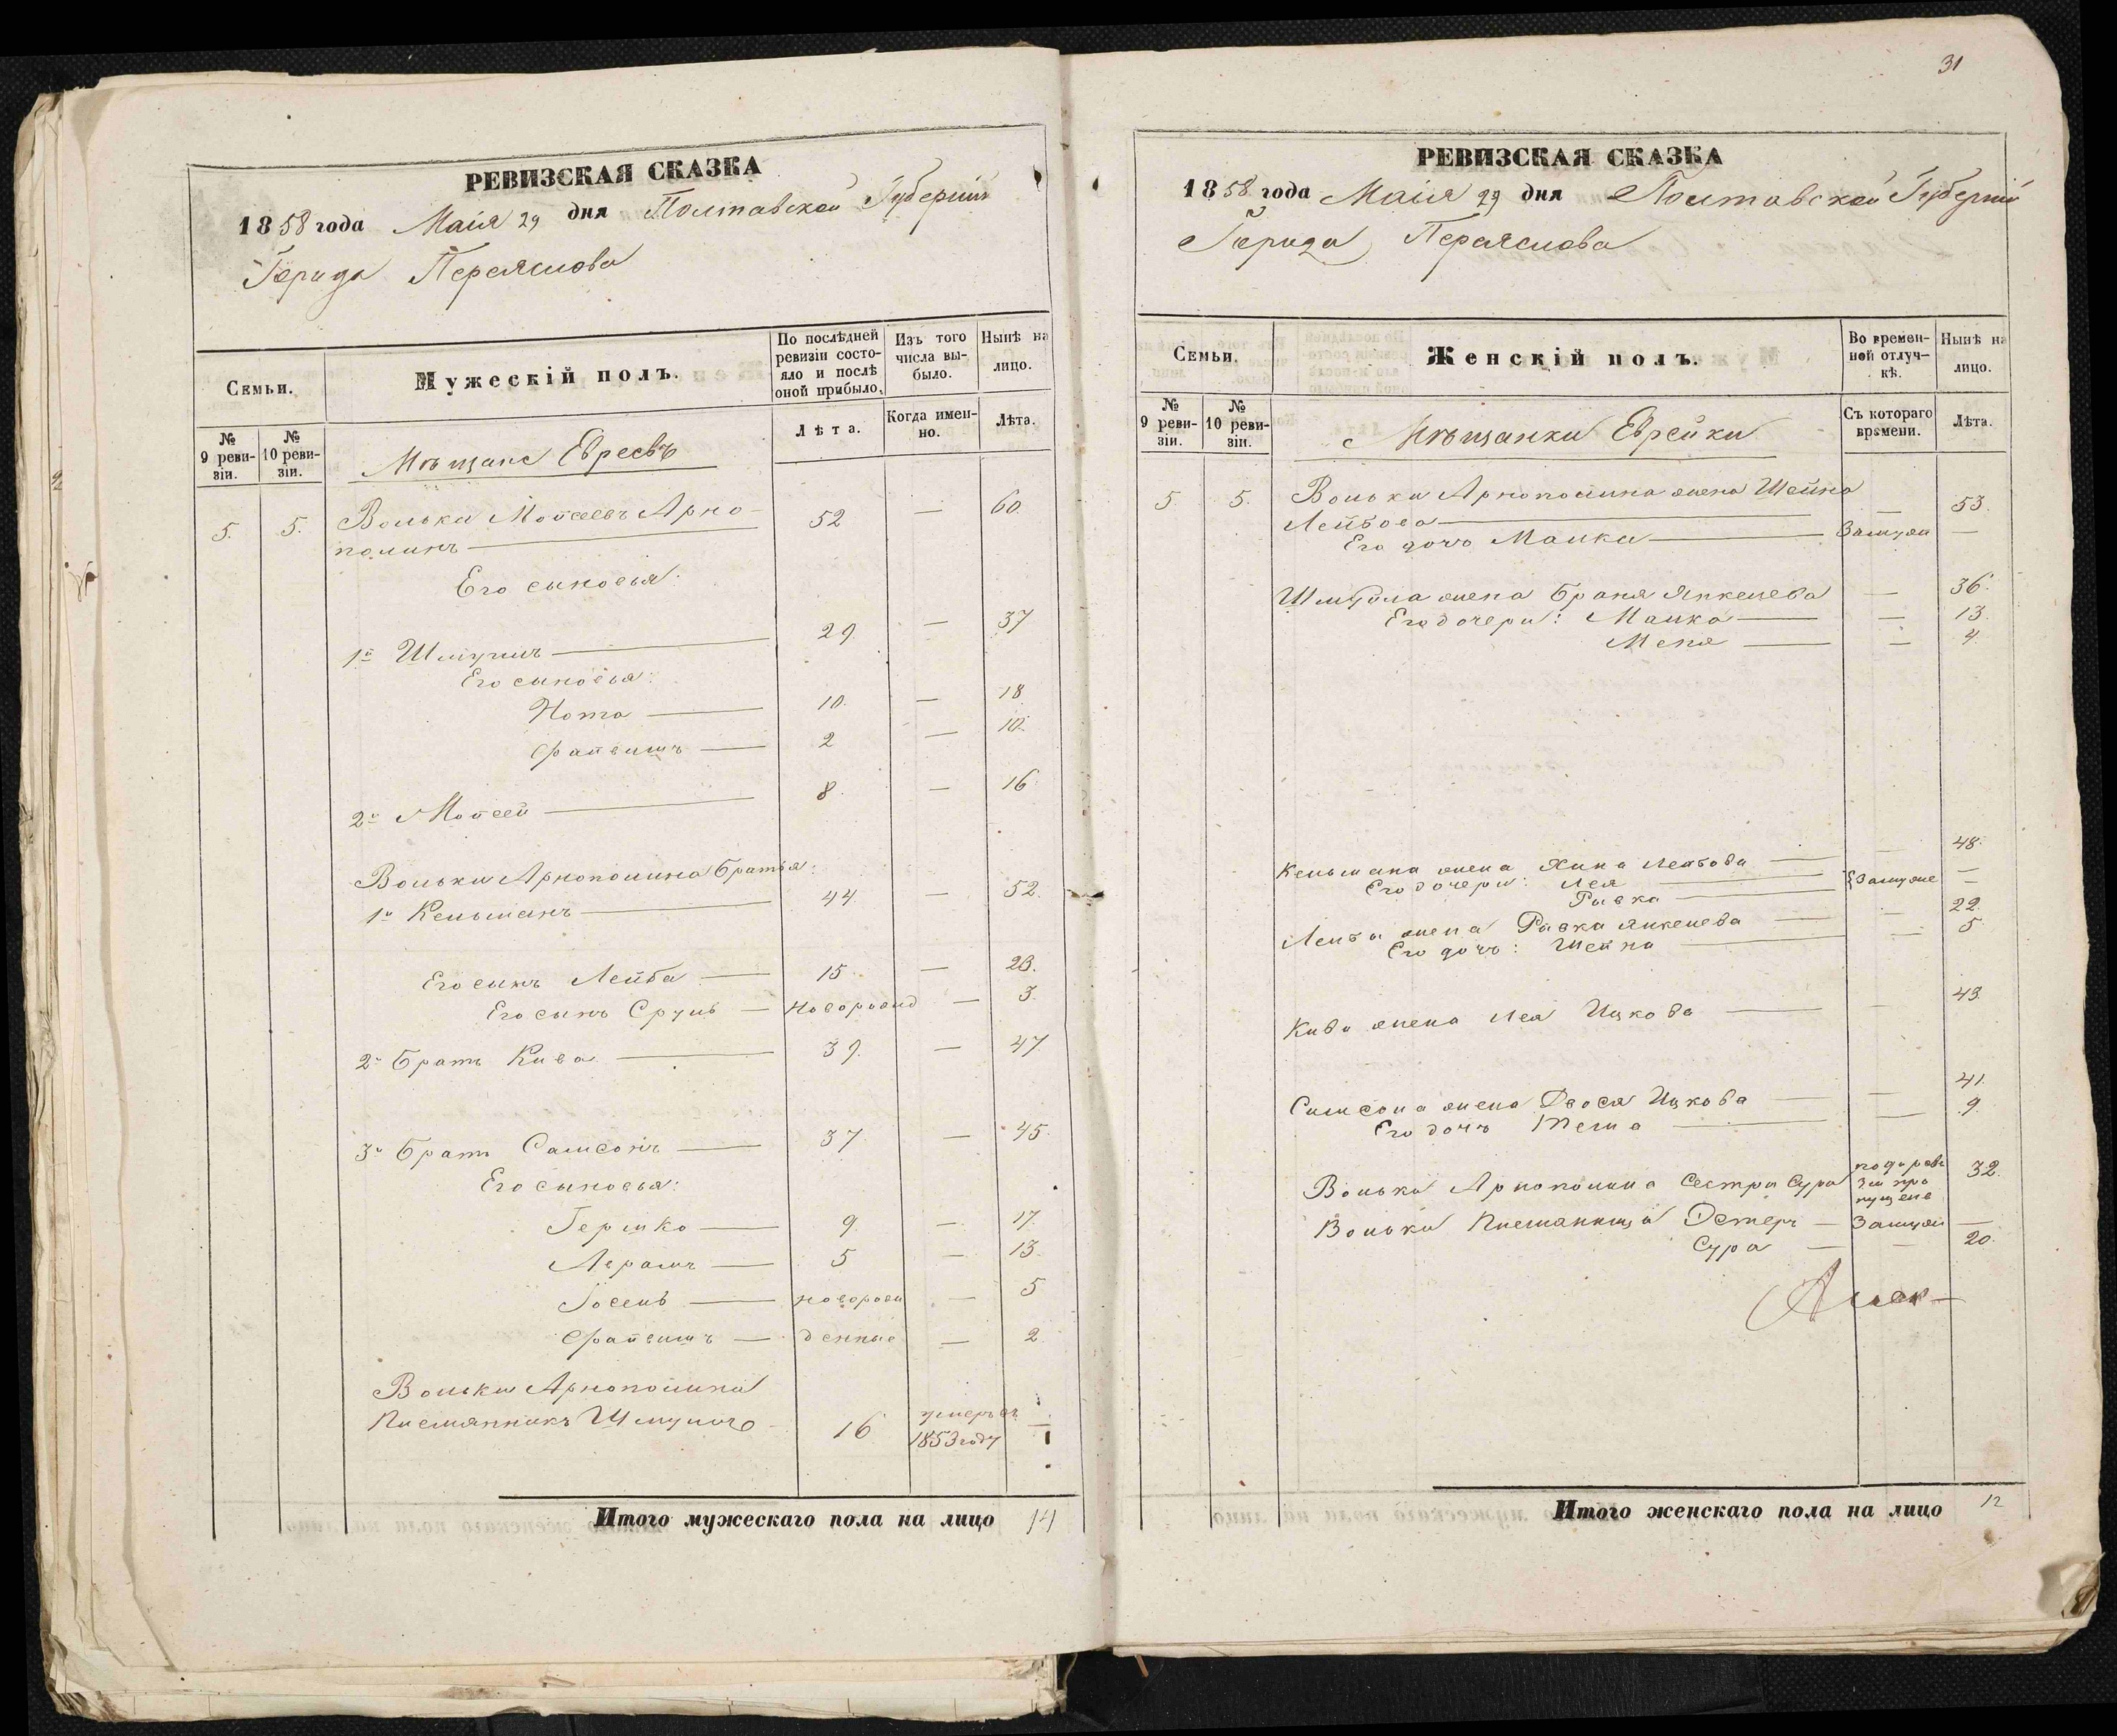 РЕВИЗСКАЯ СКАЗКА
1858 года Маія 29 дня Полтавской Губерніи
Города Переяслова
Семьи.
Мужескій полъ.
По послѣдней ревизіи состо-
яло и послѣ оной прибыло,
Изъ того числа вы-
было.
Нынѣ на лицо.
№ 9 реви-
зіи.
№ 10 реви-
зіи.
Мѣщане Евреевъ
Лѣта.
Когда имен-
но.
Лѣта.
5. 5. Вольки Мойсеевъ Арно- 52 — 60.
полинъ
Его сыновья:
1й Шмуль 29. — 37
Его сыновья:
Нота 10. — 18
Файвишъ 2 — 10.
2й Мойсей 8. — 16
Вольки Арнополина братья:
1й Кельманъ 44 — 52.
Его сынъ Лейба 15 — 23.
Его сынъ Сруль — новорожд — 3.
2й братъ Кива 39. — 47.
3й братъ Самсонъ 37 — 45.
Его сыновья:
Гершко 9 — 17.
Абрамъ 5 — 13.
Іосель новорож — 5
Файвишъ — денные — 2
Вольки Арнополина
Племянникъ Шмуль 16 умеръ въ 1853 году —
Итого мужескаго пола на лицо 14
31
РЕВИЗСКАЯ СКАЗКА
1858 года Маія 29 дня Полтавской Губерніи
Города Переяслова
Семьи.
Женскій полъ.
Во времен-
ной отлуч-
кѣ.
Нынѣ на лицо.
№ 9 реви-
зіи.
№ 10 реви-
зіи.
Мѣщанки Еврейки
Съ котораго времени.
Лѣта.
5. 5. Вольки Арнополина жена Шейна — 53.
Лейбова
Его дочь Малка — Замужн —
Шмуля жена Браня Янкелева — 36.
Его дочери: Малка — 13
Меня — 4.
Кельмана жена Хина Лейбова — 48.
Его дочери: Лея } Замужне —
Ривка —
Лейби жена Ривка Янкелева — 22.
Его дочь: Шейна — 5.
Киви жена Лея Ицкова — 43.
Самсона жена Двося Ицкова — 41.
Его дочь — 9.
Вольки Арнополина сестра Сура 32.
Вольки Племянница Эстеръ — Замужн —
Сура — — 20.
Итого женскаго пола на лицо 12